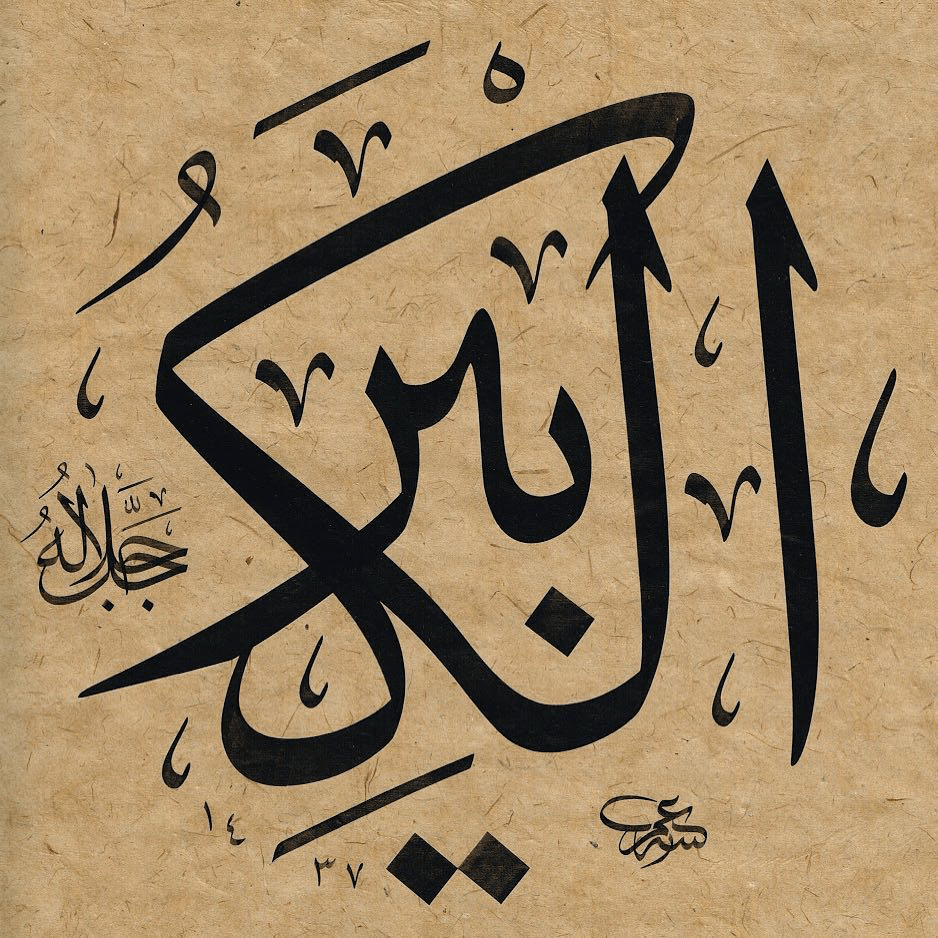 الْكَبِيرُ
جَلَّ جَلَالُهُ
١٤٣٧